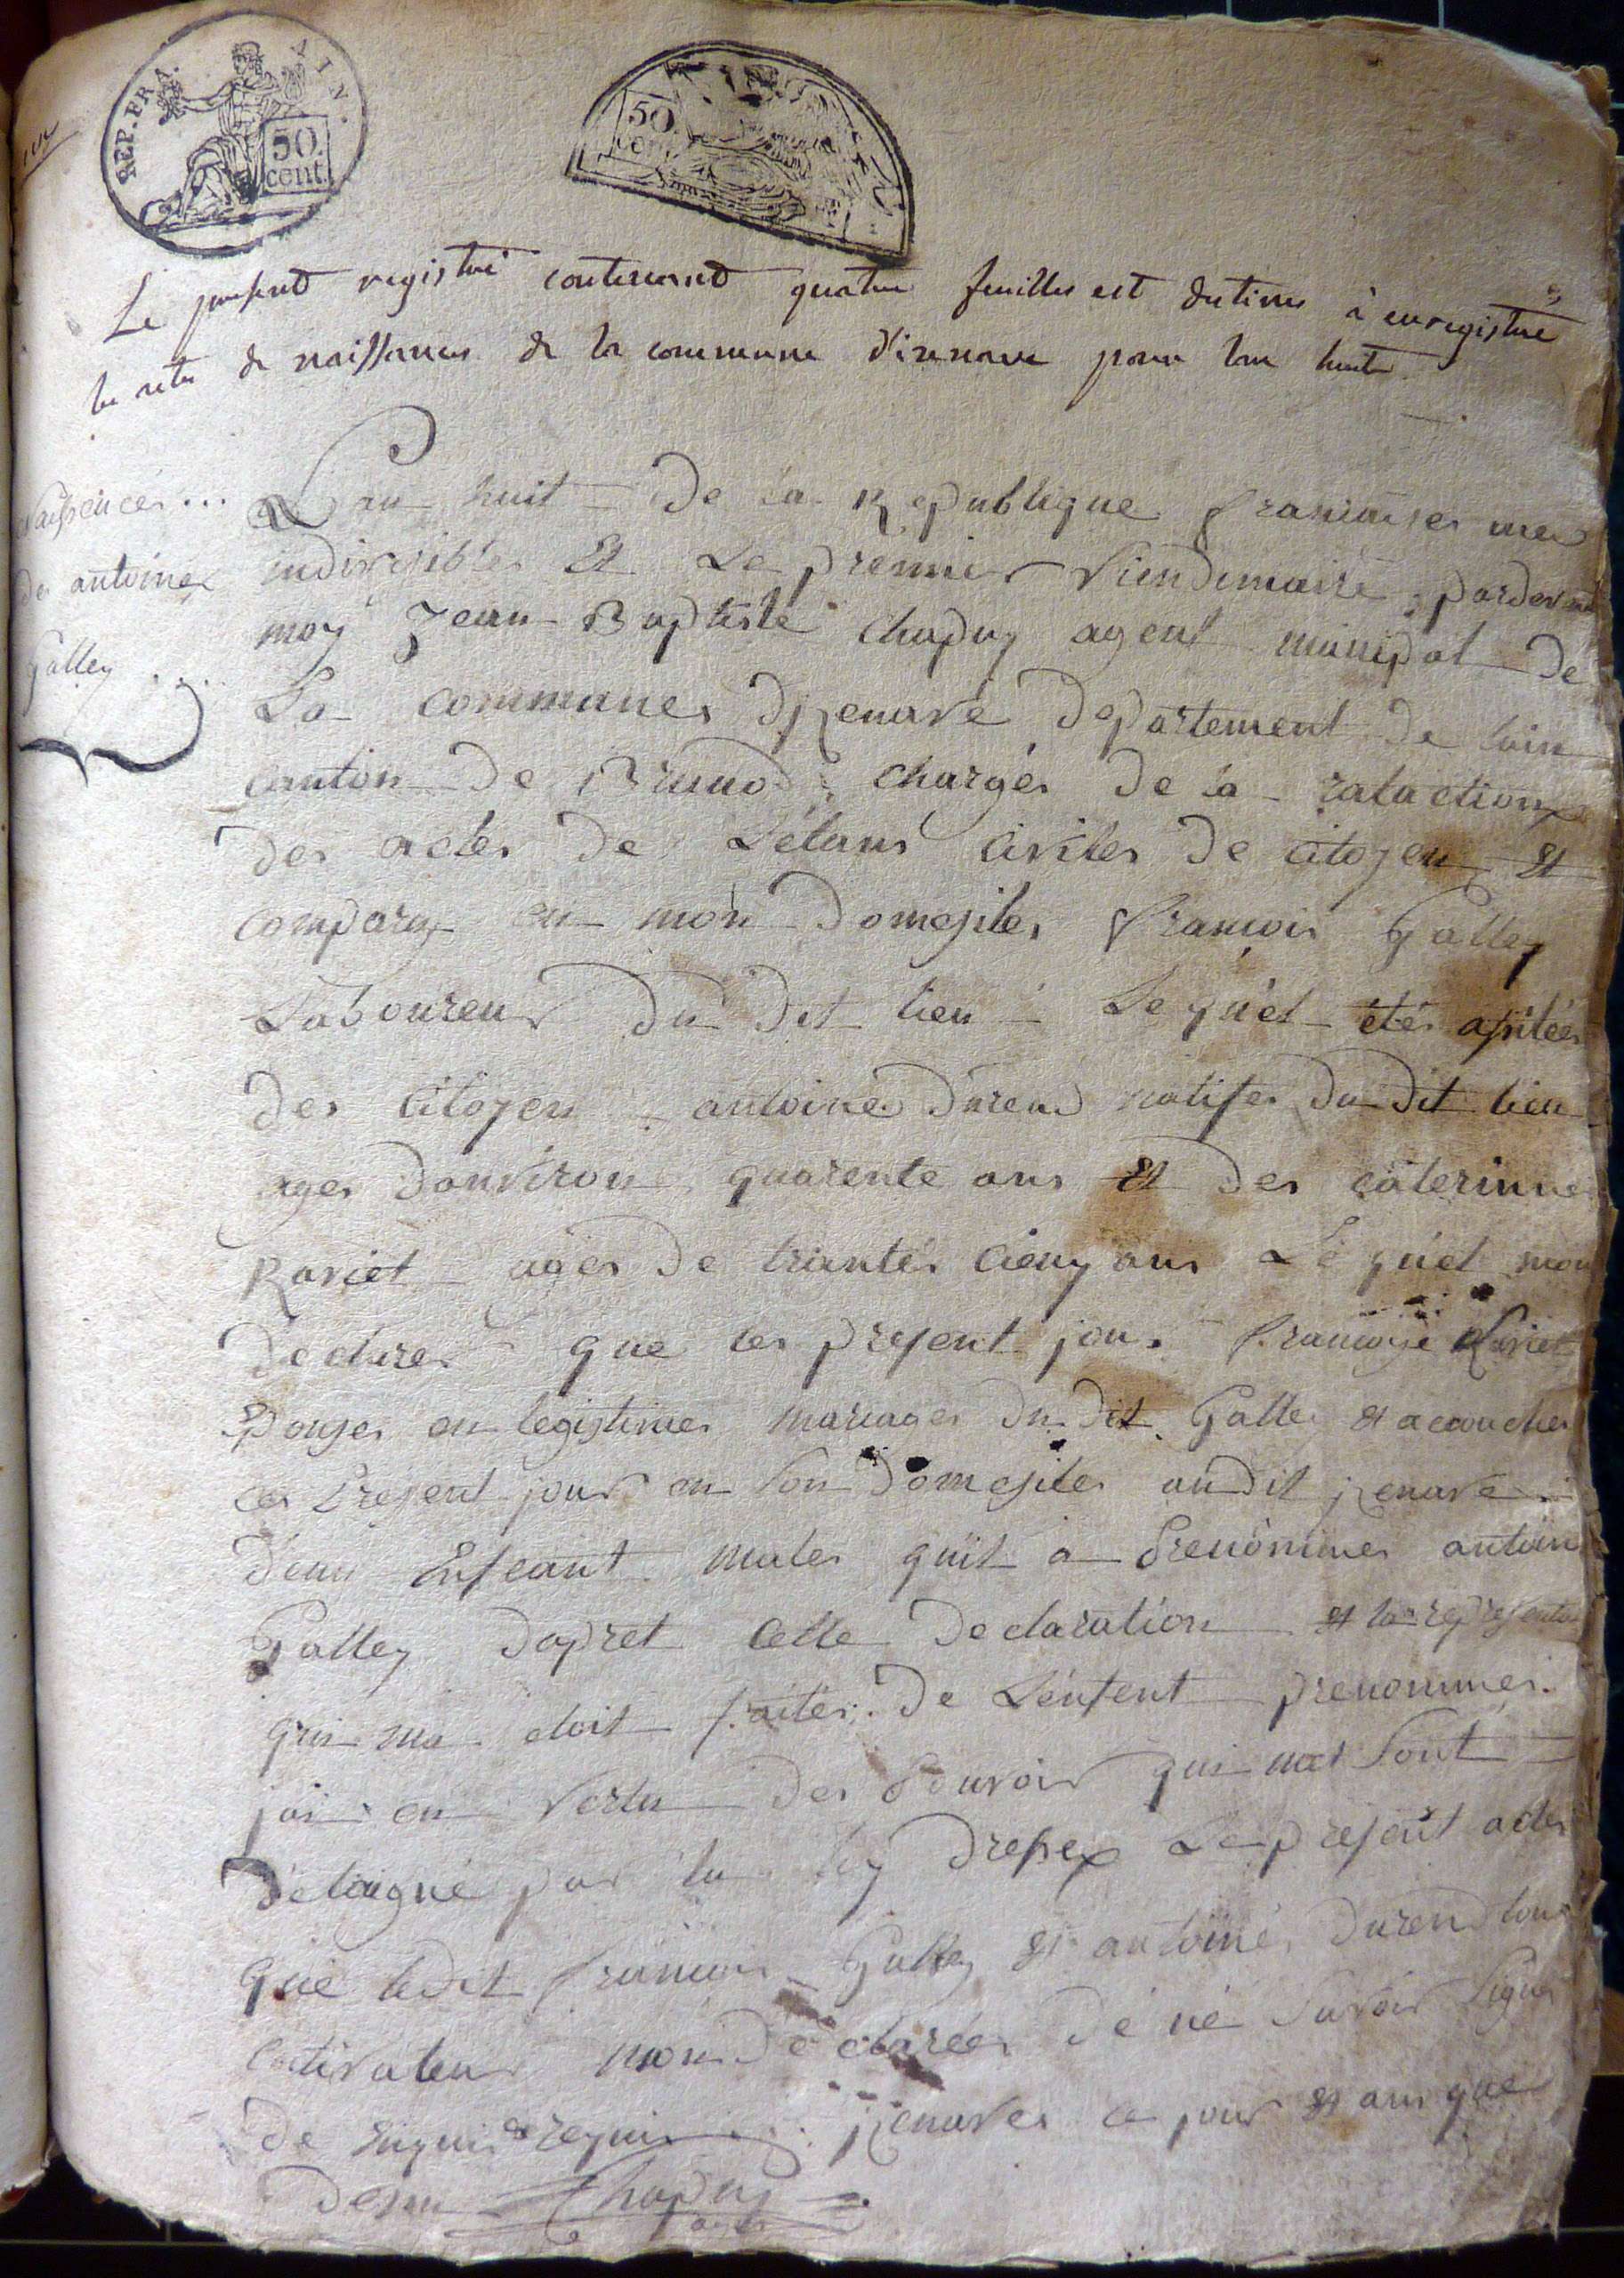 REP. FRA.
AIN.
50
cent.
50
cent
Le present registre contenant quatre feuilles est destines à enregistre
les actes de naissances de la commune d'izenave pour l'an huit
Naissences...
de antoine
Galley ....
Lan huit De la Republique francaises une
indivisibles Et Le premier Viendemaire pardevant
moy Jean Baptiste Chapuy agent municipal De
La Communes Djzenave Departement De lain
Canton De Brenod chargés De la radaction
Des actes De Létans Civiles De Citoyen Et
Comparu en mon Domesiles francois Galley
Laboureur Du Dit lieu Le quel etés asistées
Des Citoyen antoine Durend natifes Du Dit lieu
ages Danviron quarente ans Et Des caterinne
Raviet ages De trientes cienq ans Le quel mon
Declarer que ces present jour francoise Raviet
Epouses en legistimes mariages Du Dit Galley Et acoucher
ces Present jour en Son Domesiles audit jzenave
Deun Enfeant males quil a Prenommes antoine
Galley Dapret Celle Declaration Et la representa
qui ma etoit faites De Lenfent prenommes
jai en Vertu Des Pouvoir qui mes Sont
Deliegué par la loy Dresser Le present actes
que ledit francois Galley Et antoine Durend tous
Cultivateur mon Declarées De ne Savoir Signer
De requis jzenaves ce jour Et ans que
Desus Chapuy
agent